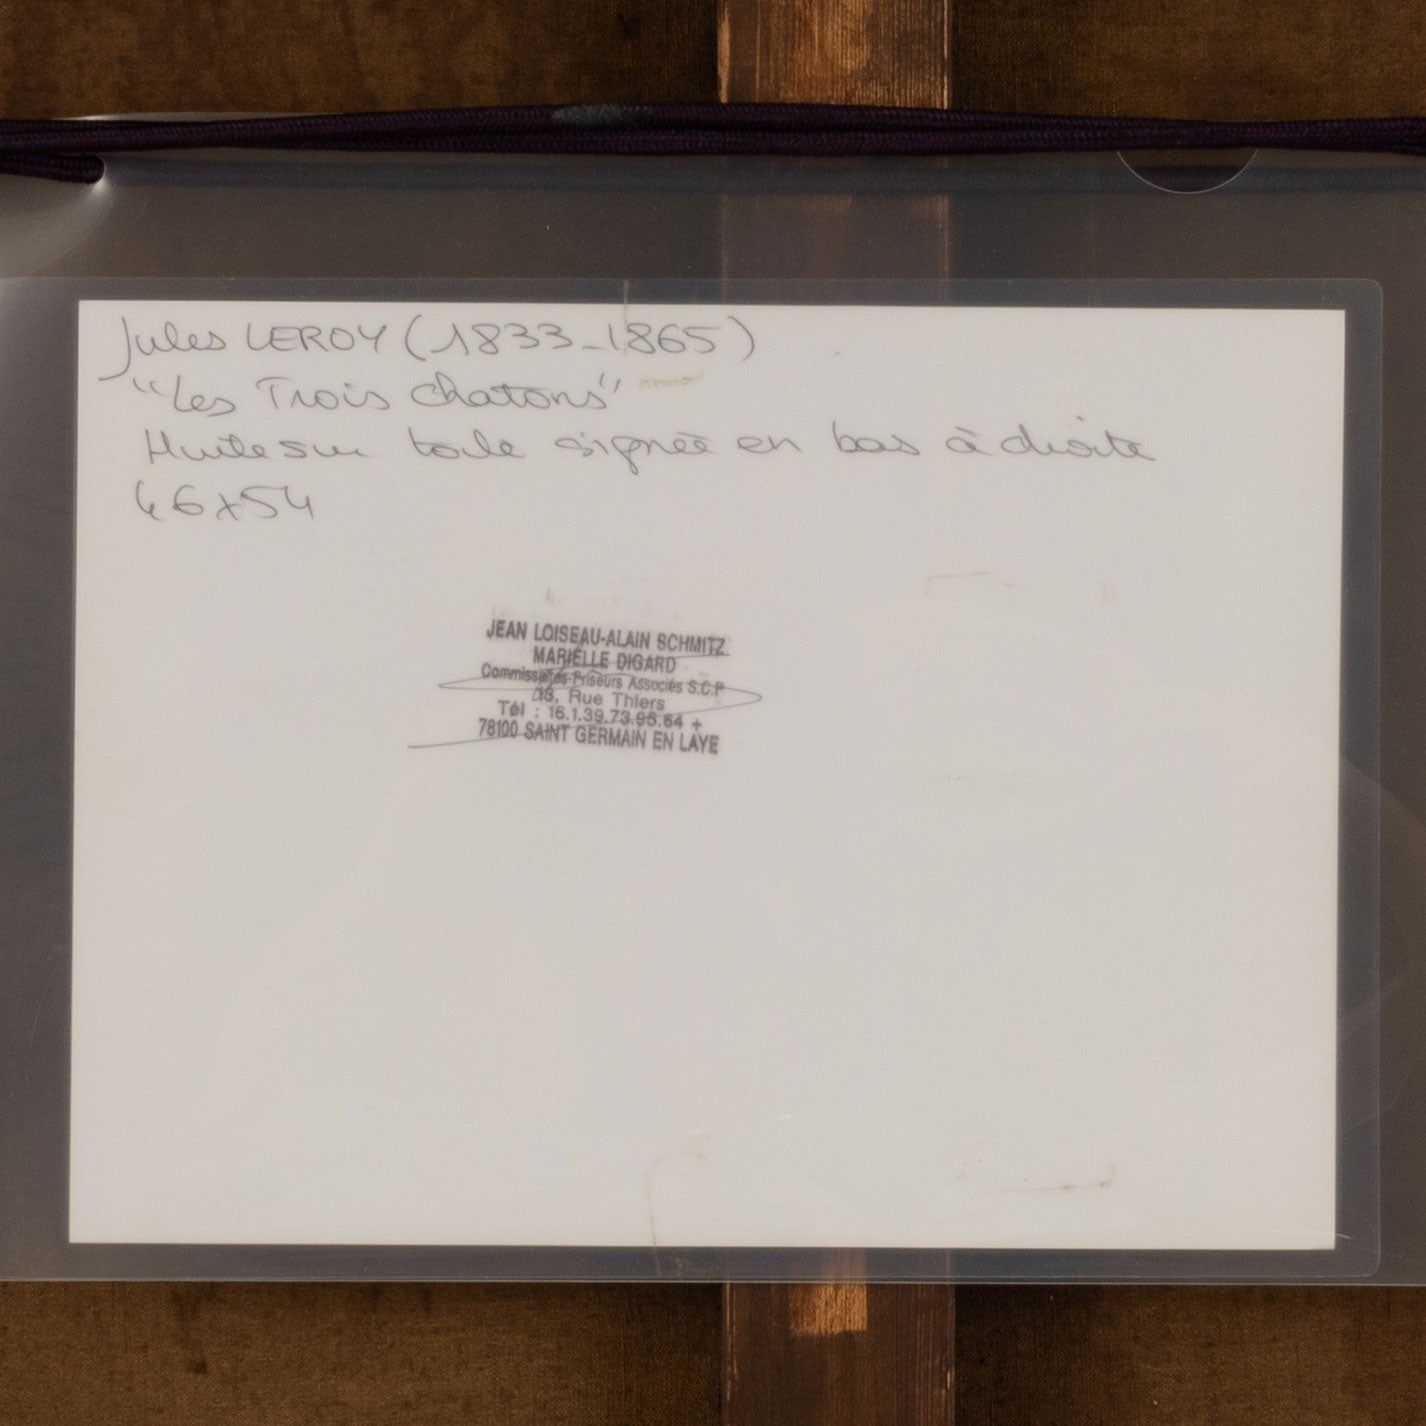 Jules LEROY (1833-1865)
"Les Trois Chatons"
Huile sur toile signée en bas à droite
46x54
JEAN LOISEAU-ALAIN SCHMITZ
MARIELLE DIGARD
Commissaires-Priseurs Associés S.C.P
13, Rue Thiers
Tél : 16.1.39.73.95.64 +
78100 SAINT GERMAIN EN LAYE